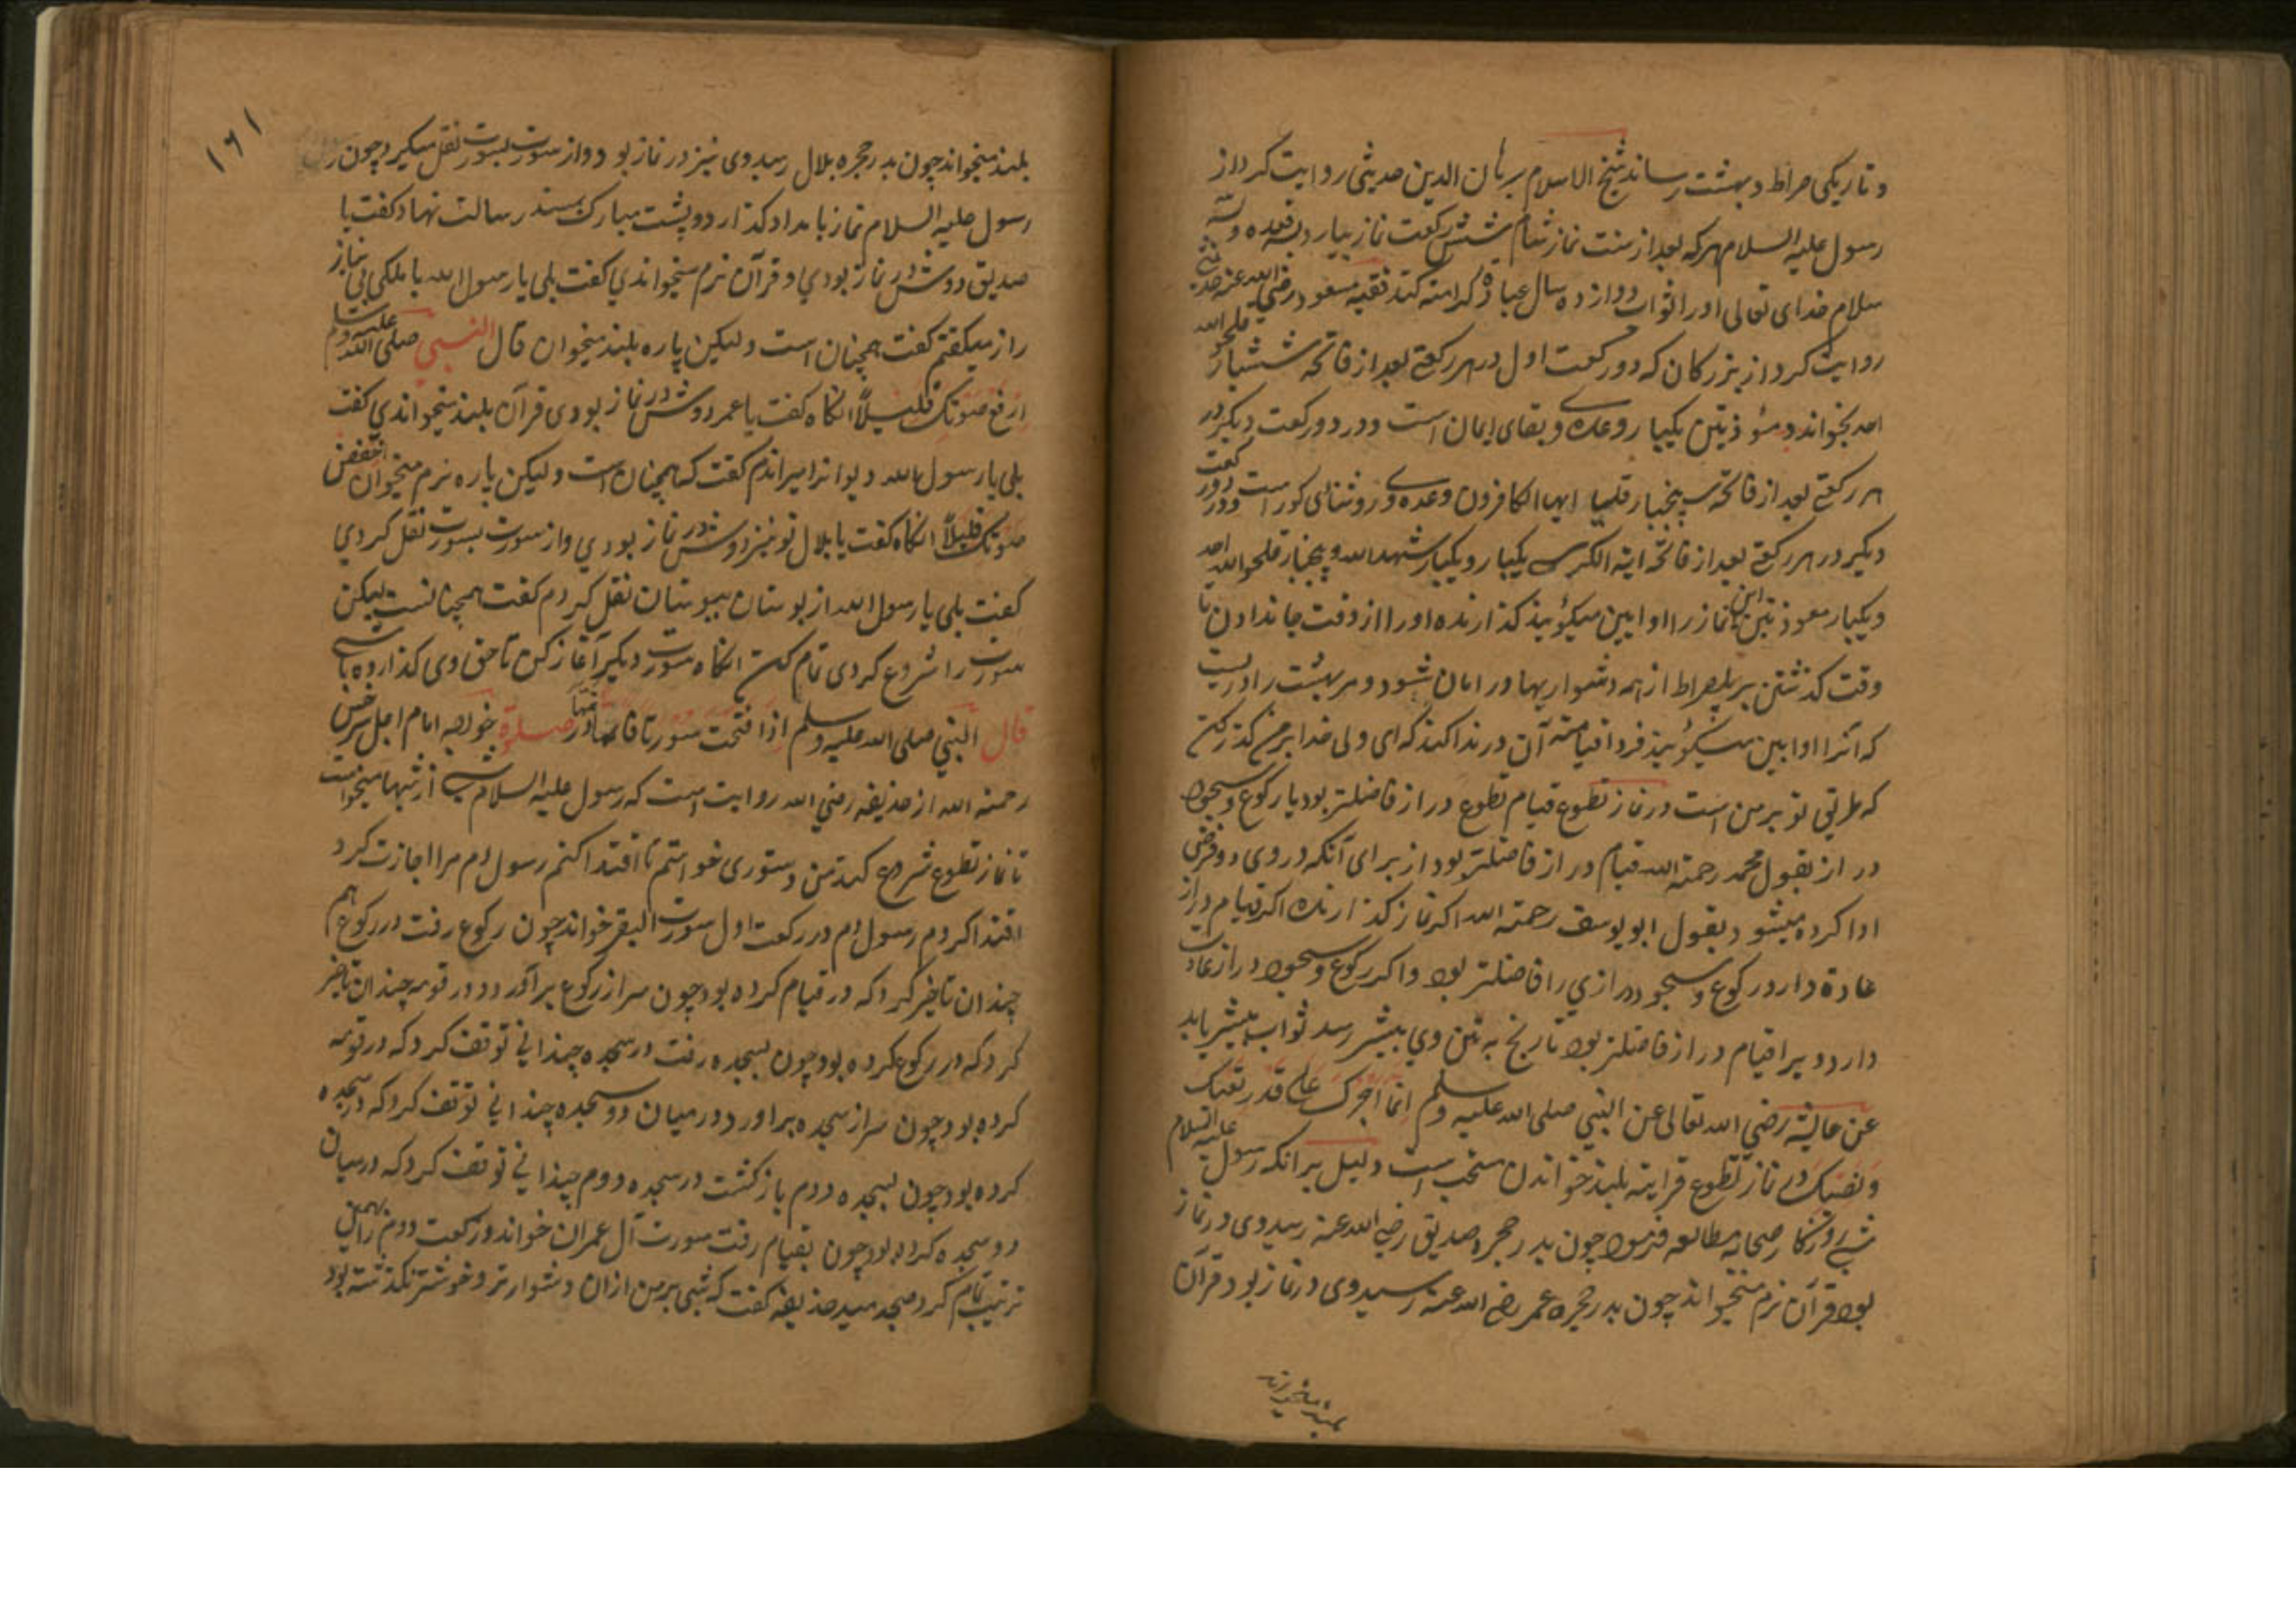 و تاریکی صراط و بهشت رساند شیخ الاسلام برهان الدین حدیثی روایت کرد از
رسول علیه السلام هر که بعد از سنت نماز شام شش رکعت نماز بیارد بسه قعده و سه
سلام خدای تعالی او را ثواب دوازده سال عبادة کرامت کند فقیه مسعود رضی الله عنه
روایت کرد از بزرکان که دو رکعت اول در هر رکعتی بعد از فاتحه ششبار قلهو الله
احد بخواند و معوذتین یکبار و عده وبقای ایمان است و در دو رکعت دیکر در
هر رکعتی بعد از فاتحه پنجبار قلیا ایها الکافرون وعده روشنای کور است و در دو رکعت
دیکر در هر رکعتی بعد از فاتحه ایة الکرسی یکبار و یکبار شهد الله و پنجبار قلهو الله احد
و یکبار معوذتین این نماز را اوابین میکویند کذارنده او را از وقت جاندادن تا
وقت کذشتن بر پلصراط از همه دشواریها در امان شود و مر بهشت را دریست
که آنرا اوابین میکویند فردا قیامة آن در ندا کند که ای ولی خدا بر من کذر کن
که طریق تو بر من است در نماز تطوع قیام تطوع دراز فاضلتر بود یا رکوع و سجود
دراز بقول محمد رحمة الله قیام دراز فاضلتر بود از برای آنکه در وی دو فرض
ادا کرده میشود و بقول ابو یوسف رحمة الله اکر نماز کذارنده اکر قیام دراز
عادة دارد رکوع و سجود درازی را فاضلتر بود و اکر رکوع و سجود دراز عادت
دارد ویرا قیام دراز فاضلتر بود تا رنج به تن وی بیشتر رسد ثواب بیشتر یابد
عن عایشة رضی الله تعالی عن النبی صلی الله علیه وسلم انما اجرک علی قدر تعبک
ونصبک در نماز تطوع قراءة بلند خواندن مستحب است دلیل بر انکه رسول علیه السلام
شبی روزکار صحابه مطالعه فرمود چون بدر حجره صدیق رضی الله عنه رسید وی در نماز
بود قرآن نرم میخواند چون بدر حجره عمر رضی الله عنه رسید وی در نماز بود قرآن
بلند میخواند
١٦١
بلند میخواند چون بدر حجره بلال رسید وی نیز در نماز بود و از سورت بسورت نقل میکرد چون
رسول علیه السلام نماز بامداد کذارد و پشت مبارک بمسند رسالت نهاد کفت یا
صدیق دوش در نماز بودی و قرآن نرم میخواندی کفت بلی یا رسول الله با ملکی بی نیاز
راز میکفتم کفت همچنان است ولیکن پاره بلند میخوان قال النبی صلی الله علیه وسلم
ارفع صوتک قلیلاً انکاه کفت یا عمر دوش در نماز بودی قرآن بلند میخواندی کفت
بلی یا رسول الله دیو انرا میراندم کفت که همچنان است ولیکن پاره نرم میخوان اخفض
صوتک قلیلاً انکاه کفت یا بلال تو نیز دوش در نماز بودی و از سورت بسورت نقل کردی
کفت بلی یا رسول الله از بوستان ببوستان نقل کردم کفت همچنانست لیکن
سورت را شروع کردی تمام کن انکاه سورت دیکر آغاز کن تا حق وی کذارده باشی
قال النبی صلی الله علیه وسلم اذا افتحت سورتا فاتمها در صلوة خواجه امام اجل سرخسی
رحمة الله از حذیفه رضی الله روایت است که رسول علیه السلام شبی از شبها میخواست
تا نماز تطوع شروع کند من دستوری خواستم تا اقتدا کنم رسول م مرا اجازت کرد
اقتدا کردم رسول م در رکعت اول سورت البقر خواند چون رکوع رفت در رکوع هم
چندان تاخیر کرد که در قیام کرده بود چون سر از رکوع برآورد در قومه چندان تاخیر
کرد که در رکوع کرده بود چون بسجده رفت در سجده چندانی توقف کرد که در قومه
کرده بود چون سر از سجده براورد در میان دو سجده چندانی توقف کرد که در سجده
کرده بود چون بسجده دوم باز کشت در سجده دوم چندانی توقف کرد که در میان
دو سجده کرده بود چون بقیام رفت سورت آل عمران خواند و رکعت دوم را بهمین
ترتیب تمام کرد صبح دمید حذیفه کفت که شبی بر من ازان دشوارتر و خوشتر نکذشته بود